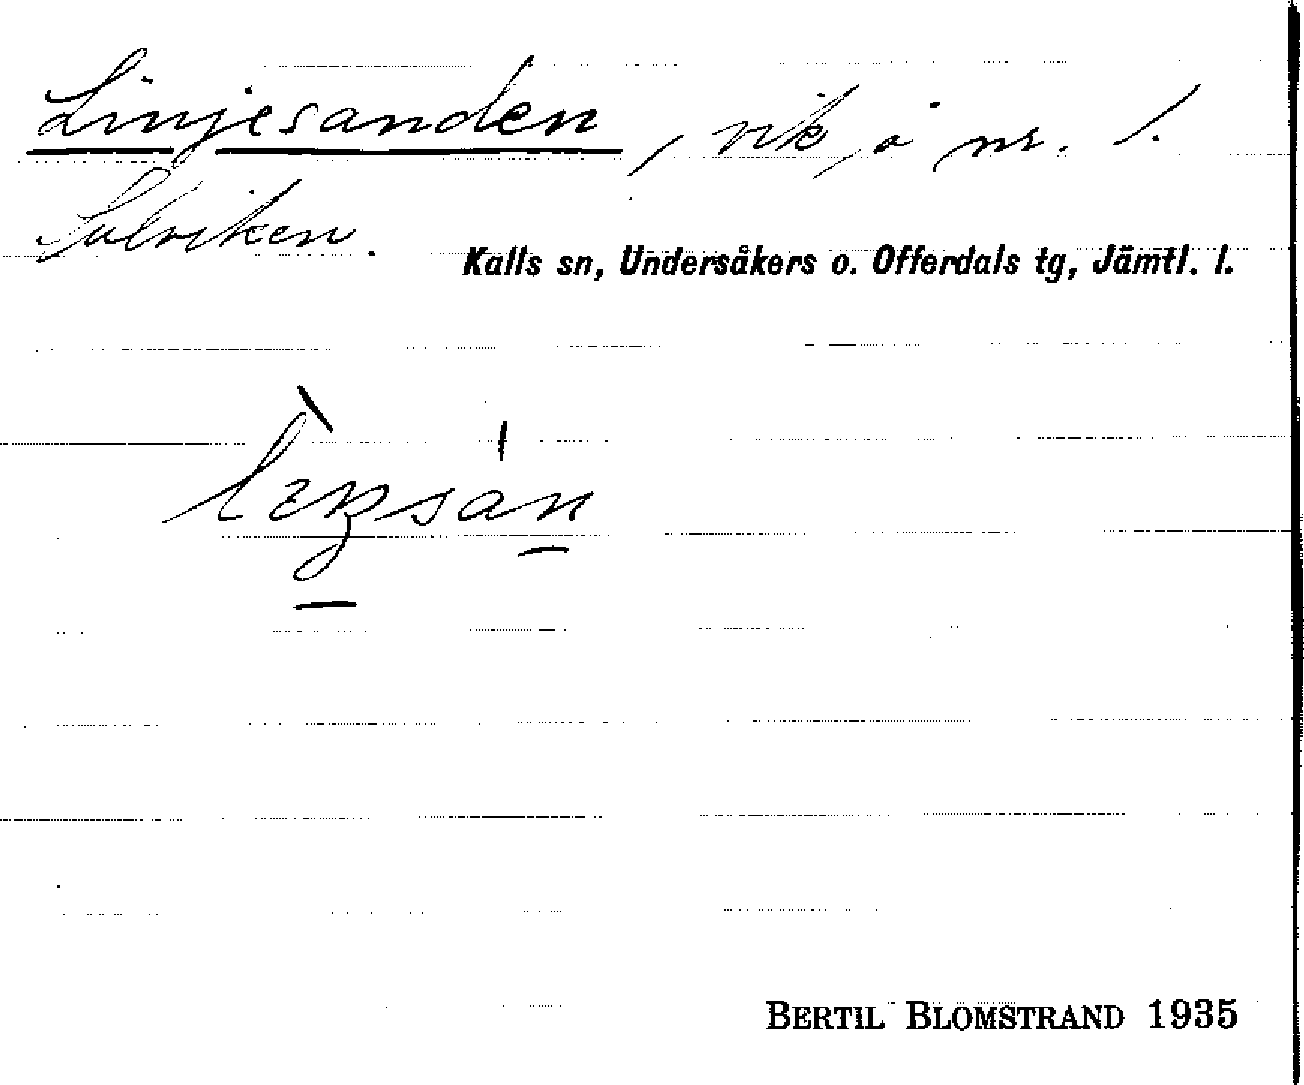 Linjesanden, vik å nr. 1.
Sulviken.
Kalls sn, Undersåkers o. Offerdals tg, Jämtl. l.
BERTIL BLOMSTRAND 1935